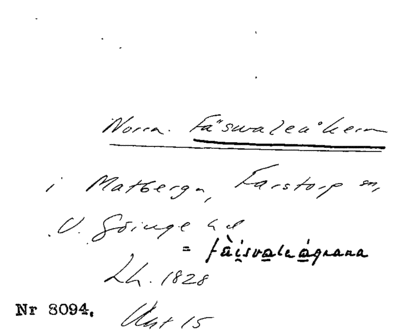 Norra. Fäsvaleåkern
i Matberga, Farstorp sn,
V. Göinge hd
= fäisvaleågrana
Lh. 1828
Nr 8094. Akt 15